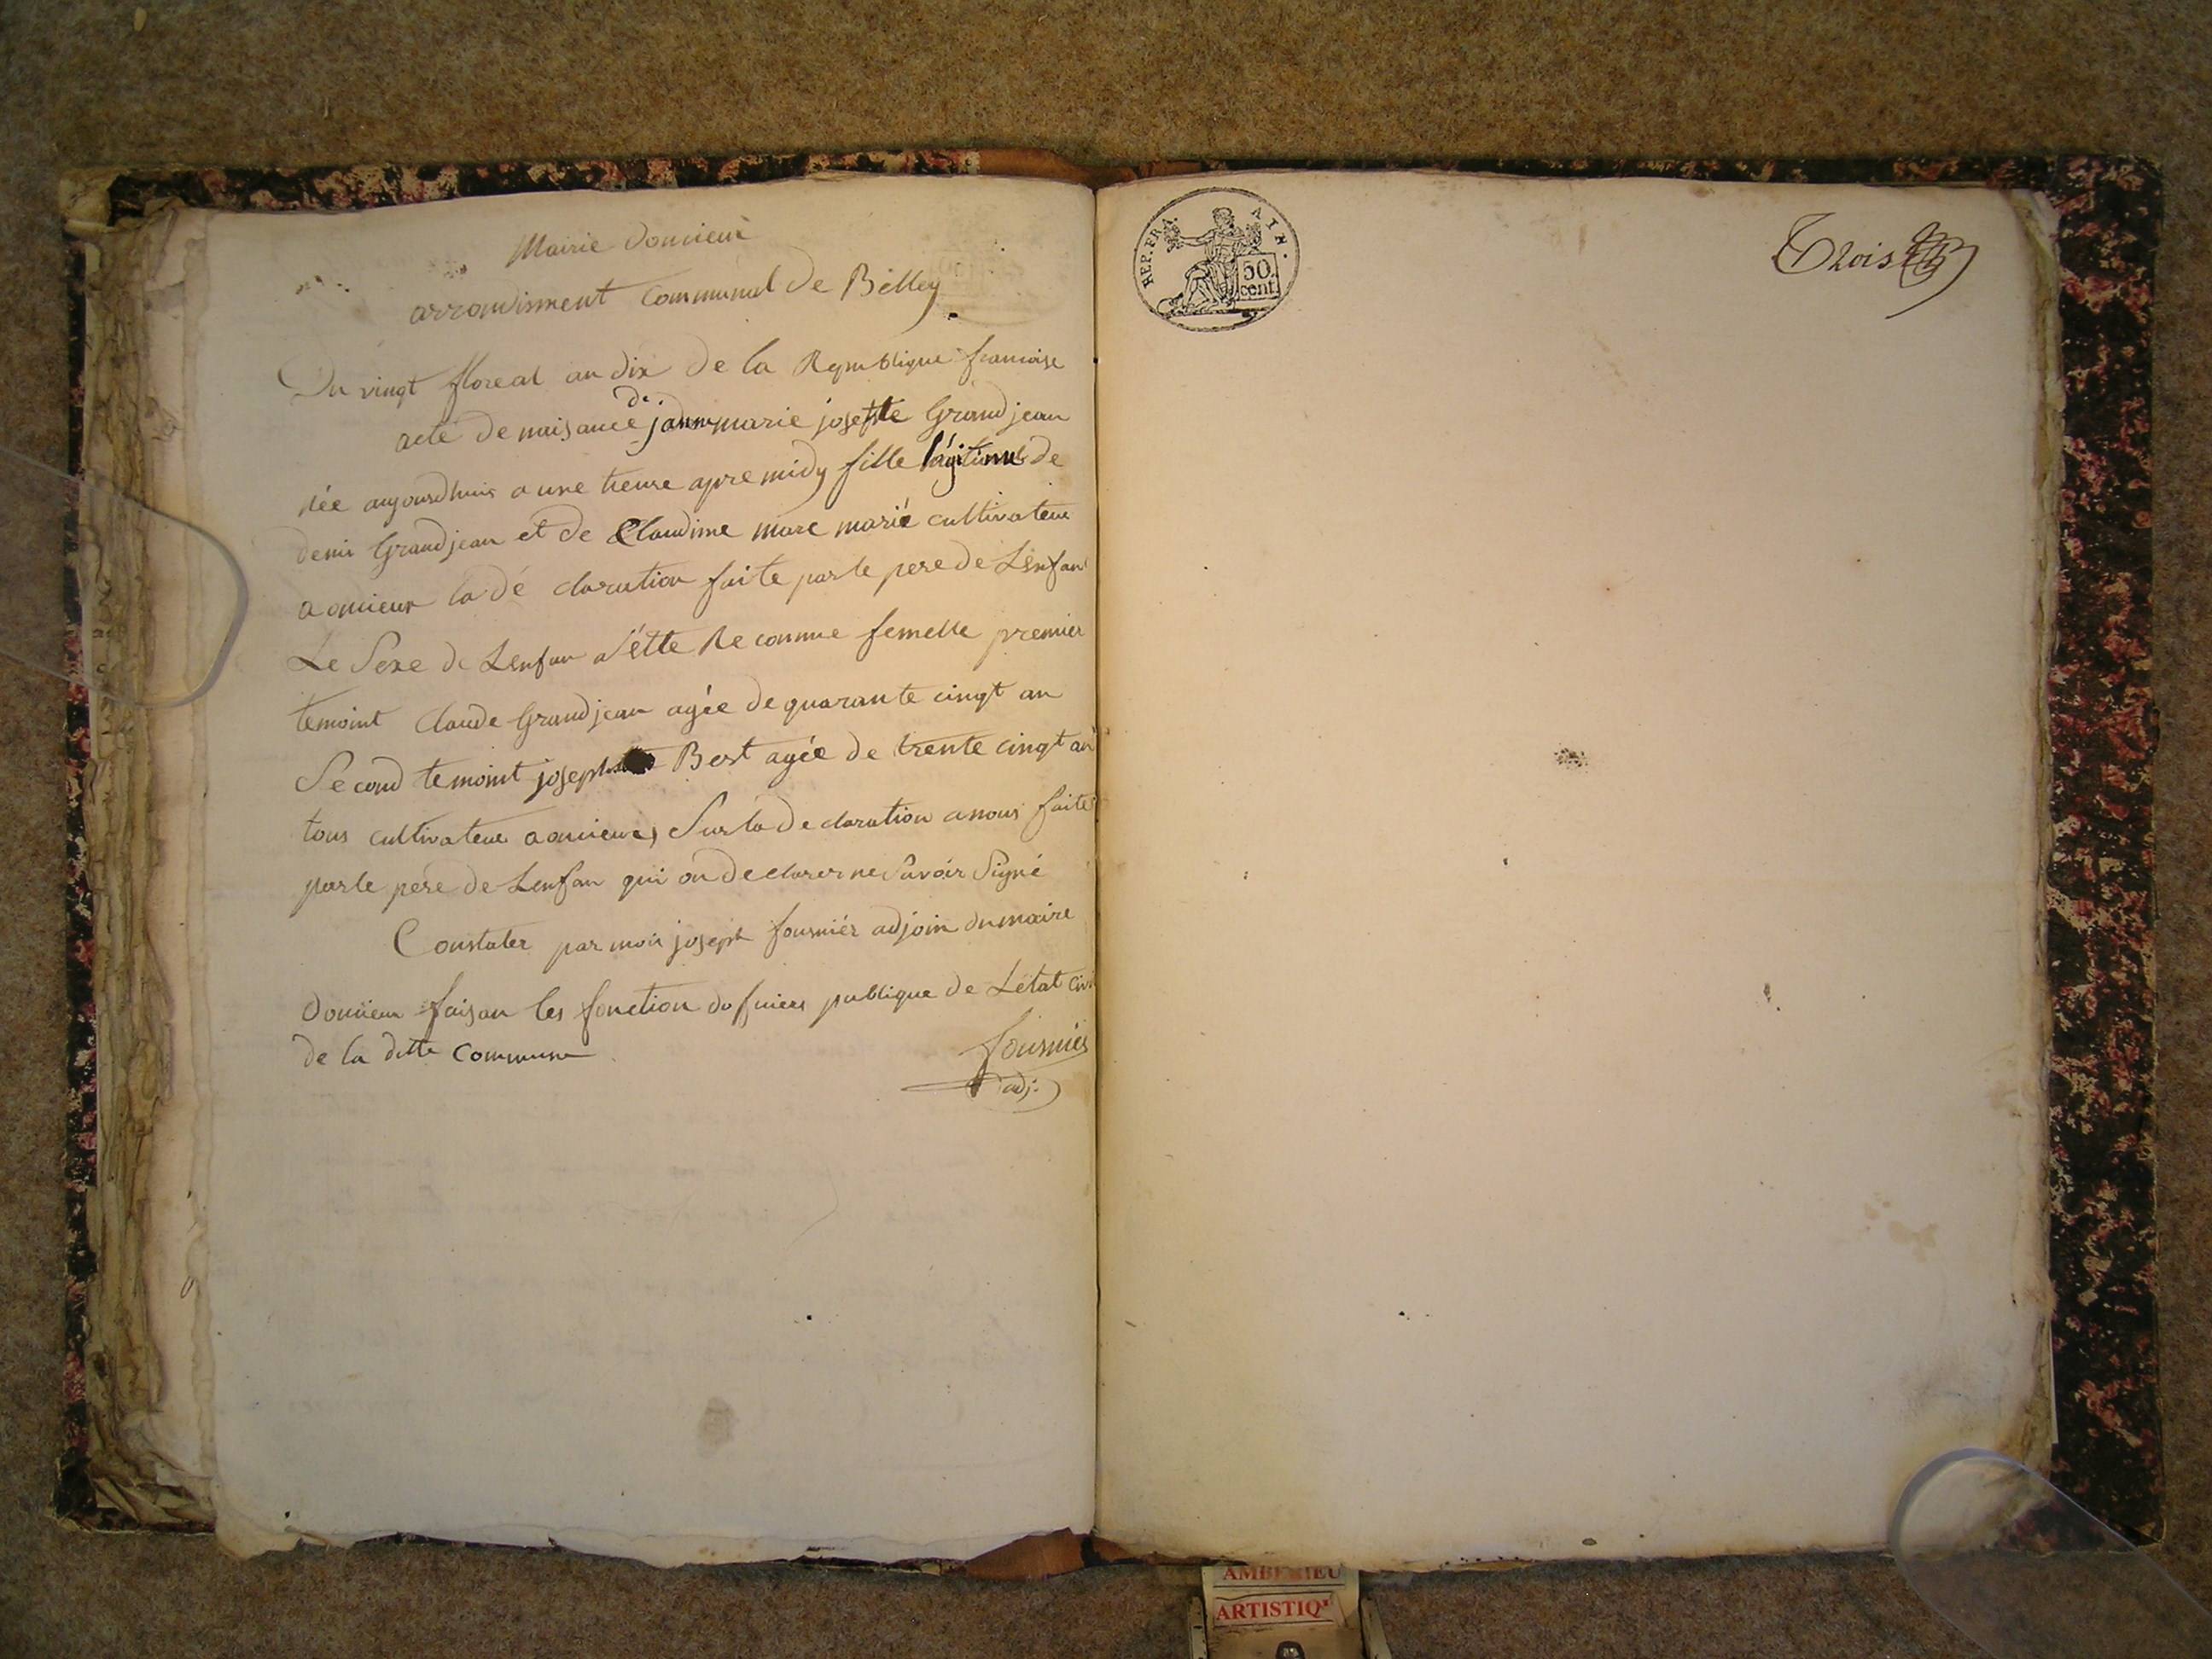 Mairie doncieux
arrondisment Communal de Belley
Du vingt floreal an dix de la Republique francoise
acte de naisance de janne marie josephte Grandjean
née aujourdhuis a une heure apre midy fille légitime de
denis Grandjean et de Claudine marc marié cultivateur
a oncieux la dé claration faite par le pere de Lenfan
Le Sexe de Lenfan a étte Reconnue femelle premier
temoint Claude Grandjean agée de quarante cingt an
Second temoint joseph Best agée de trente cingt an
tous cultivateur a oncieux, Sur la declaration a nous faite
par le pere de Lenfan qui on declarer ne Savoir Signé
Constater par moi joseph fournier adjoin du maire
doncieux faisan les fonction doficiers publique de Létat civil
de la ditte Commune
fournier
adj:
REP. FRA. AIN.
50.
cent.
Trois
AMBERIEU
ARTISTIQ